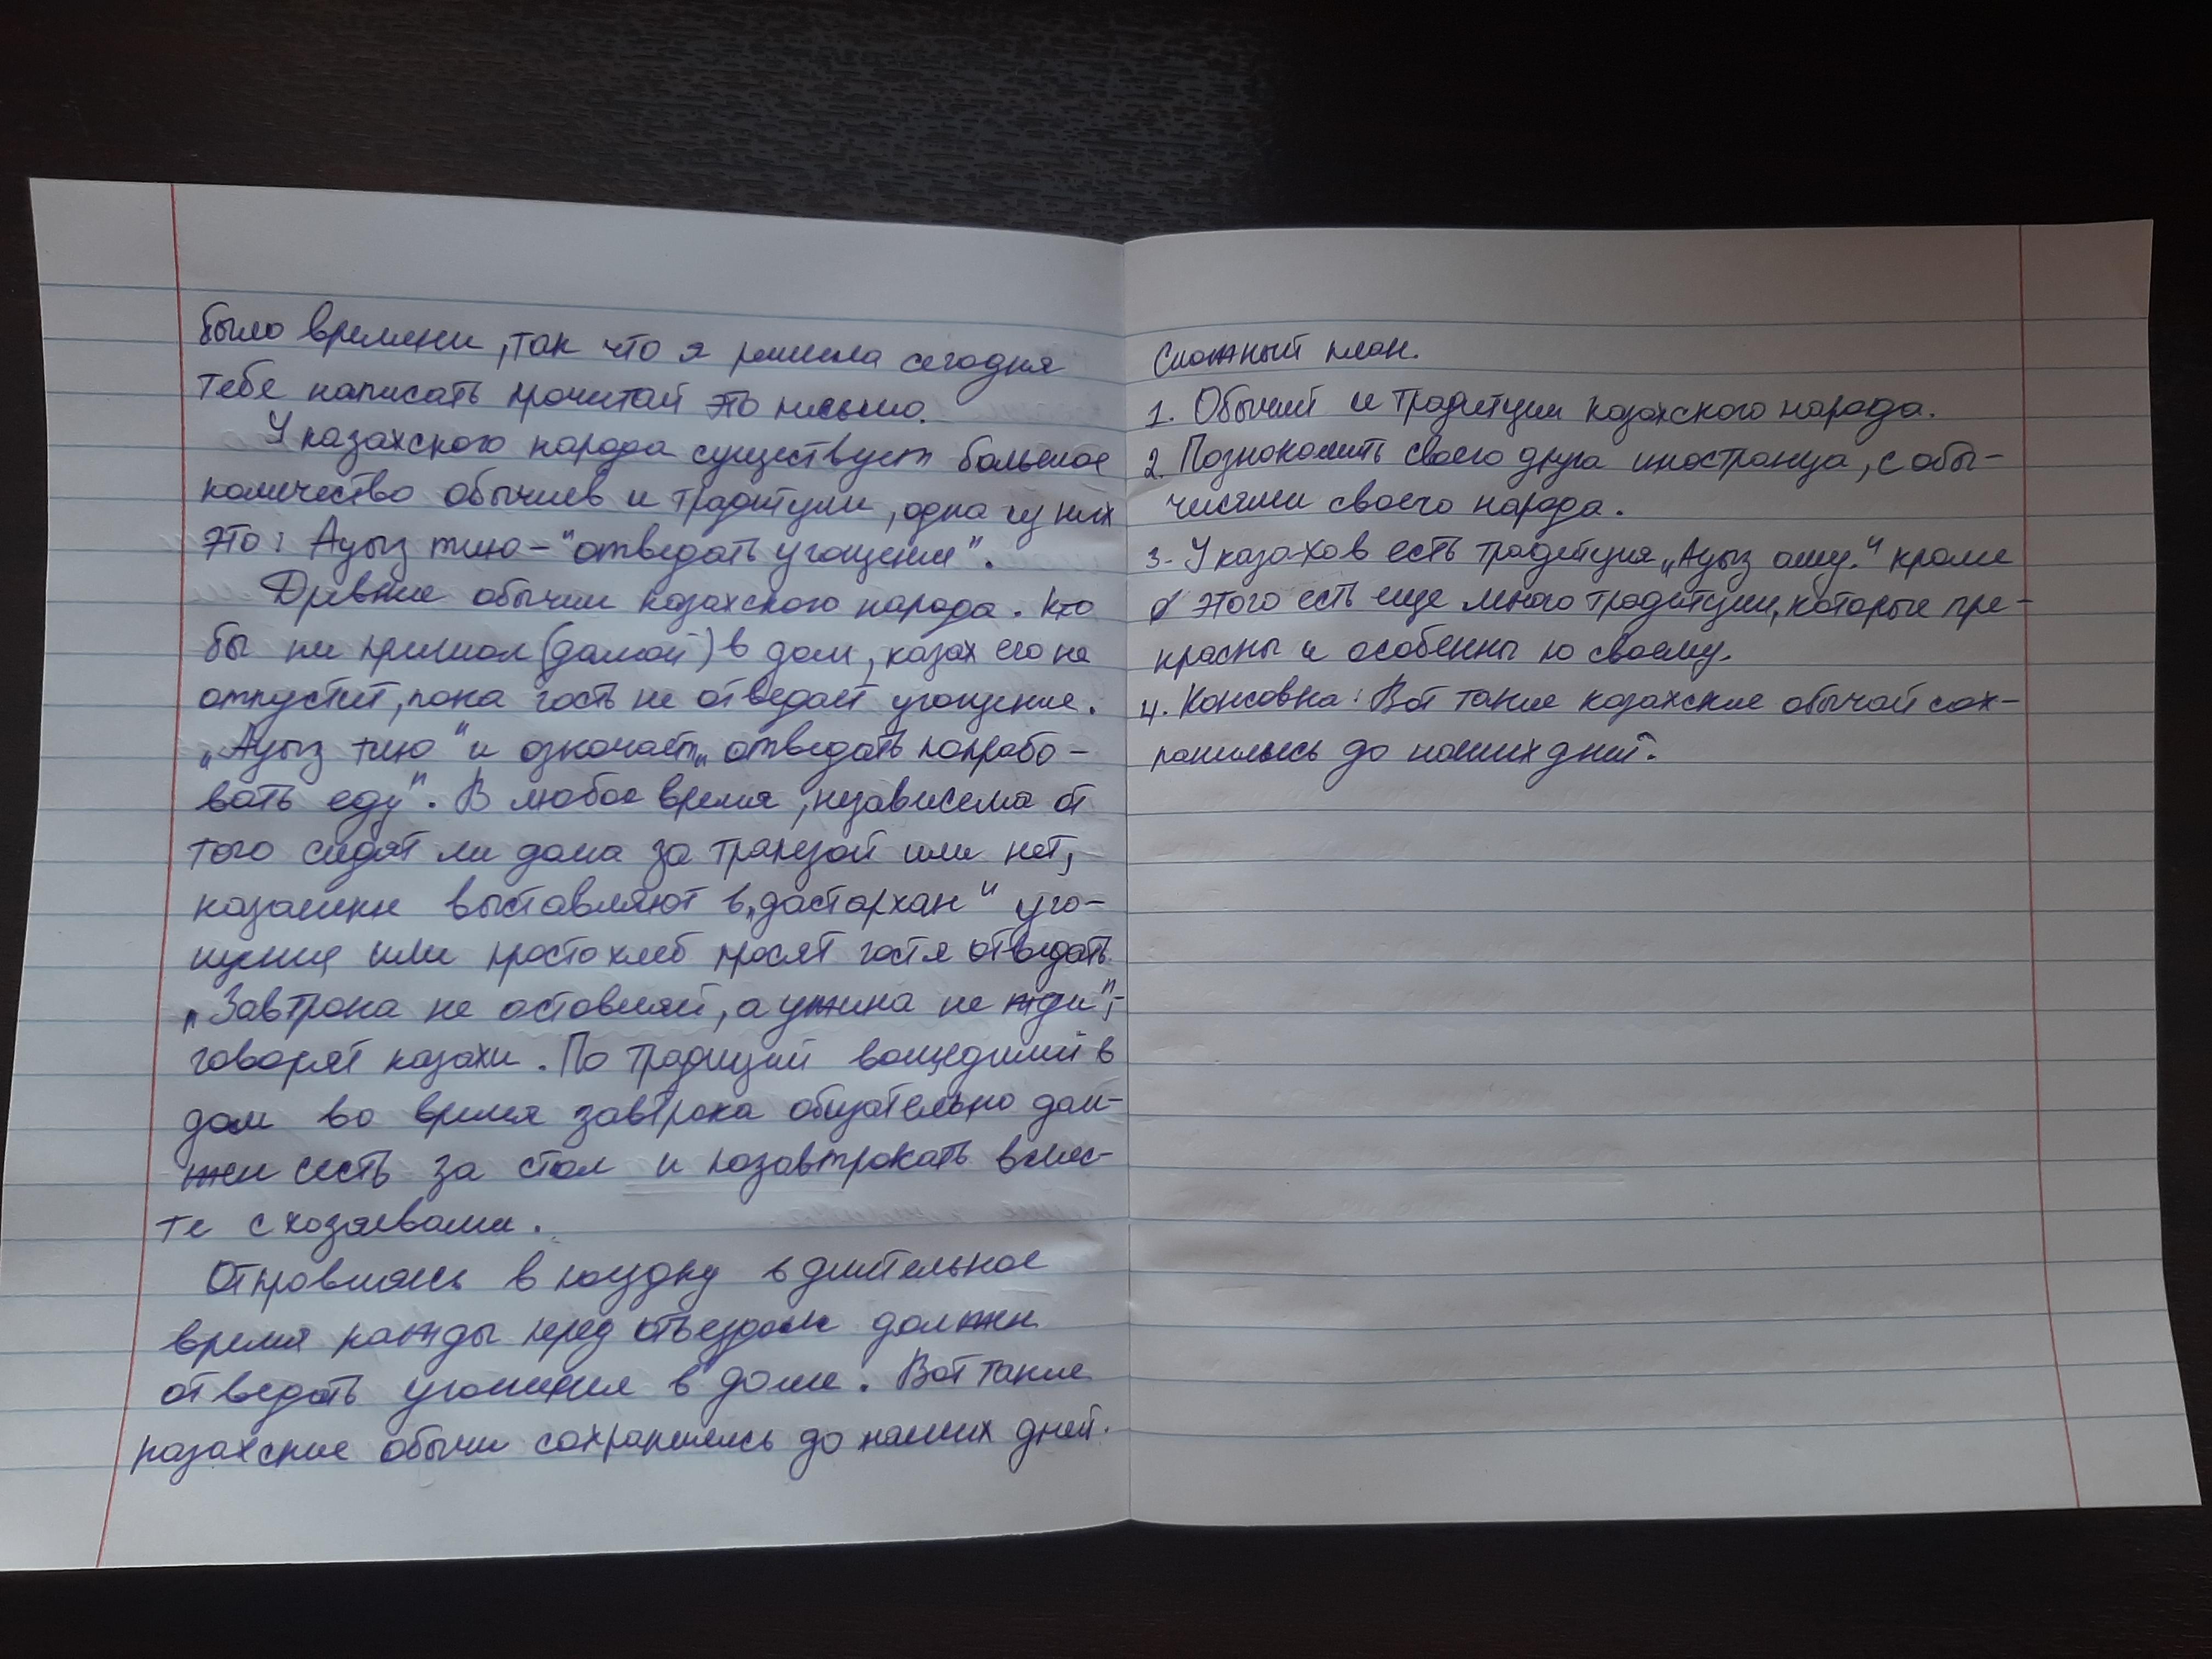 было времени, так что я решила сегодня
тебе написать прочитай это письмо.
У казахского народа существует большое
количество обычиев и традитции, одна из них
это: Ауыз тию – "отведать угощение".
Дривние обычии казахского народа. Кто
бы ни пришол (домой) в дом, казах его не
отпустит, пока гость не отведает угощение.
„Ауыз тию" и означает „отведать попробо-
вать еду". В любое время, независема от
того сидят ли дома за трапезой или нет,
казашки выставляют в „дастархан" уго-
щение или просто хлеб просят гостя отведать.
„Завтрака не оставляй, а ужина не жди", -
говорят казахи. По традиций вошедший в
дом во время завтрака обязательно дол-
жен сесть за стол и позавтракать вмес-
те с хозяевами.
Отправляясь в поездку в длительное
время кажды перед отъездом должен
отведать угощения в доме. Вот такие
казахские обычи сохранились до наших дней.
Сложный план.
1. Обычий и традитции казахского народа.
2. Познакомить своего друга иностранца, с обы-
чиями своего народа.
3. У казахов есть традитция „Ауыз ашу." кроме
этого есть еще много традитции, которые пре-
красны и особенны по своему.
4. Консовка: Вот такие казахские обычай сох-
ранились до наших дней.